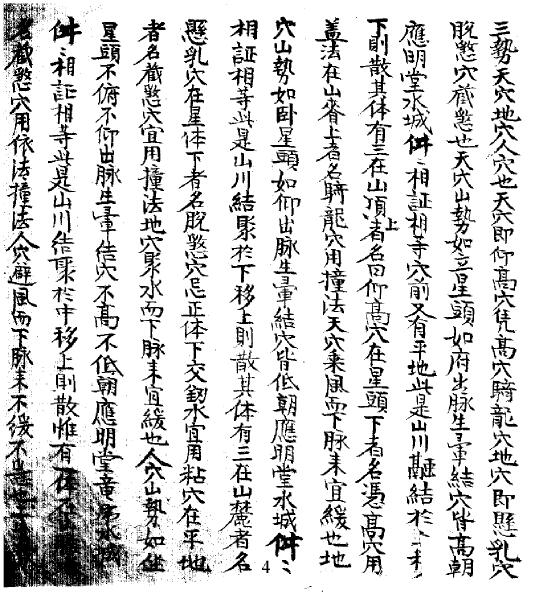 三勢天穴地穴人穴也天穴即仰高穴凭高穴騎龍穴地穴即懸乳穴
脱煞穴截煞也天穴山勢如立星頭如府出脉生暈結穴皆高朝
應明堂水城件〻相証相等穴前又有平地此是山川融結於上
下則散其体有三在山頂上者名曰仰高穴在星頭下者名憑高穴用
盖法在山脊上者名騎龍穴用撞法天穴乘風而下脉来宜緩也地
穴山勢如卧星頭如仰出脉生暈結穴皆低朝應明堂水城件〻
相証相等此是山川結聚於下移上則散其体有三在山麓者名
懸乳穴在星体下者名脱煞穴忌正体下交劔水宜用粘穴在平地
者名截煞穴宜用撞法地穴聚水而下脉来宜緩也人穴山勢如坐
星頭不俯不仰出脉生暈結穴不高不低朝應明堂水城
件〻相証相等此是山川結聚於中移上則散惟有一体
截煞穴用依法撞法人穴避風而下脉来不緩不
4